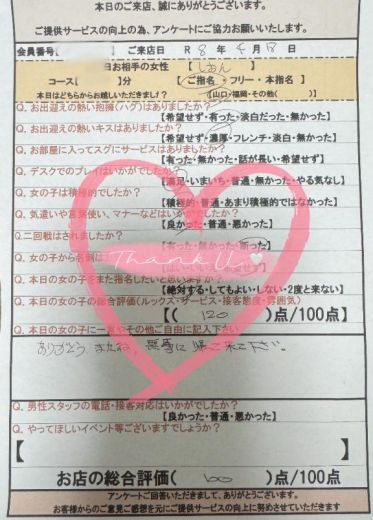 本日のご来店、誠にありがとうございます。
ご提供サービスの向上の為、アンケートにご協力お願いいたします。
会員番号 ご来店日 R 8年 4月 日
日お相手の女性 【しおん】
コース【 】分 【ご指名・フリー・本指名】
本日はどちらからお越しいただきまし? 【山口・福岡・その他( )】
Q. お出迎えの熱い抱擁(ハグ)はありましたか?
【希望せず・有った・淡白だった・無かった】
Q. お出迎えの熱いキスはありましたか?
【希望せず・濃厚・フレンチ・淡白・無かった】
Q. お部屋に入ってスグにサービスはありましたか?
【有った・無かった・話が長い・希望せず】
Q. デスクでのプレイはいかがでしたか?
【満足・いまいち・普通・無かった・やる気なし】
Q. 女の子は積極的でしたか?
【積極的・普通・あまり積極的ではなかった】
Q. 気遣いや言葉使い、マナーなどはいかがでしたか?
【良かった・普通・悪かった】
Q.二回戦はされましたか?
【有った・無かった・断った】
Q. 女の子から名刺
Thank U
Q. 本日の女の子をまた指名したいと思いますか?
【絶対する・してもよい・しない・2度と来ない】
Q. 本日の女の子の総合評価(ルックス・サービス・接客態度・雰囲気)
【( 120 )点/100点】
Q. 本日の女の子に一言やその他ご自由に記入下さい
ありがとう また 帰って来て下さい。
Q. 男性スタッフの電話・接客対応はいかがでしたか?
【良かった・普通・悪かった】
Q. やってほしいイベント等ございますでしょうか?
【 】
お店の総合評価( 100 )点/100点
アンケートご回答いただきまして、ありがとうございます。
お客様からのご意見ご感想を元にご提供サービスの向上に努めさせていただきます